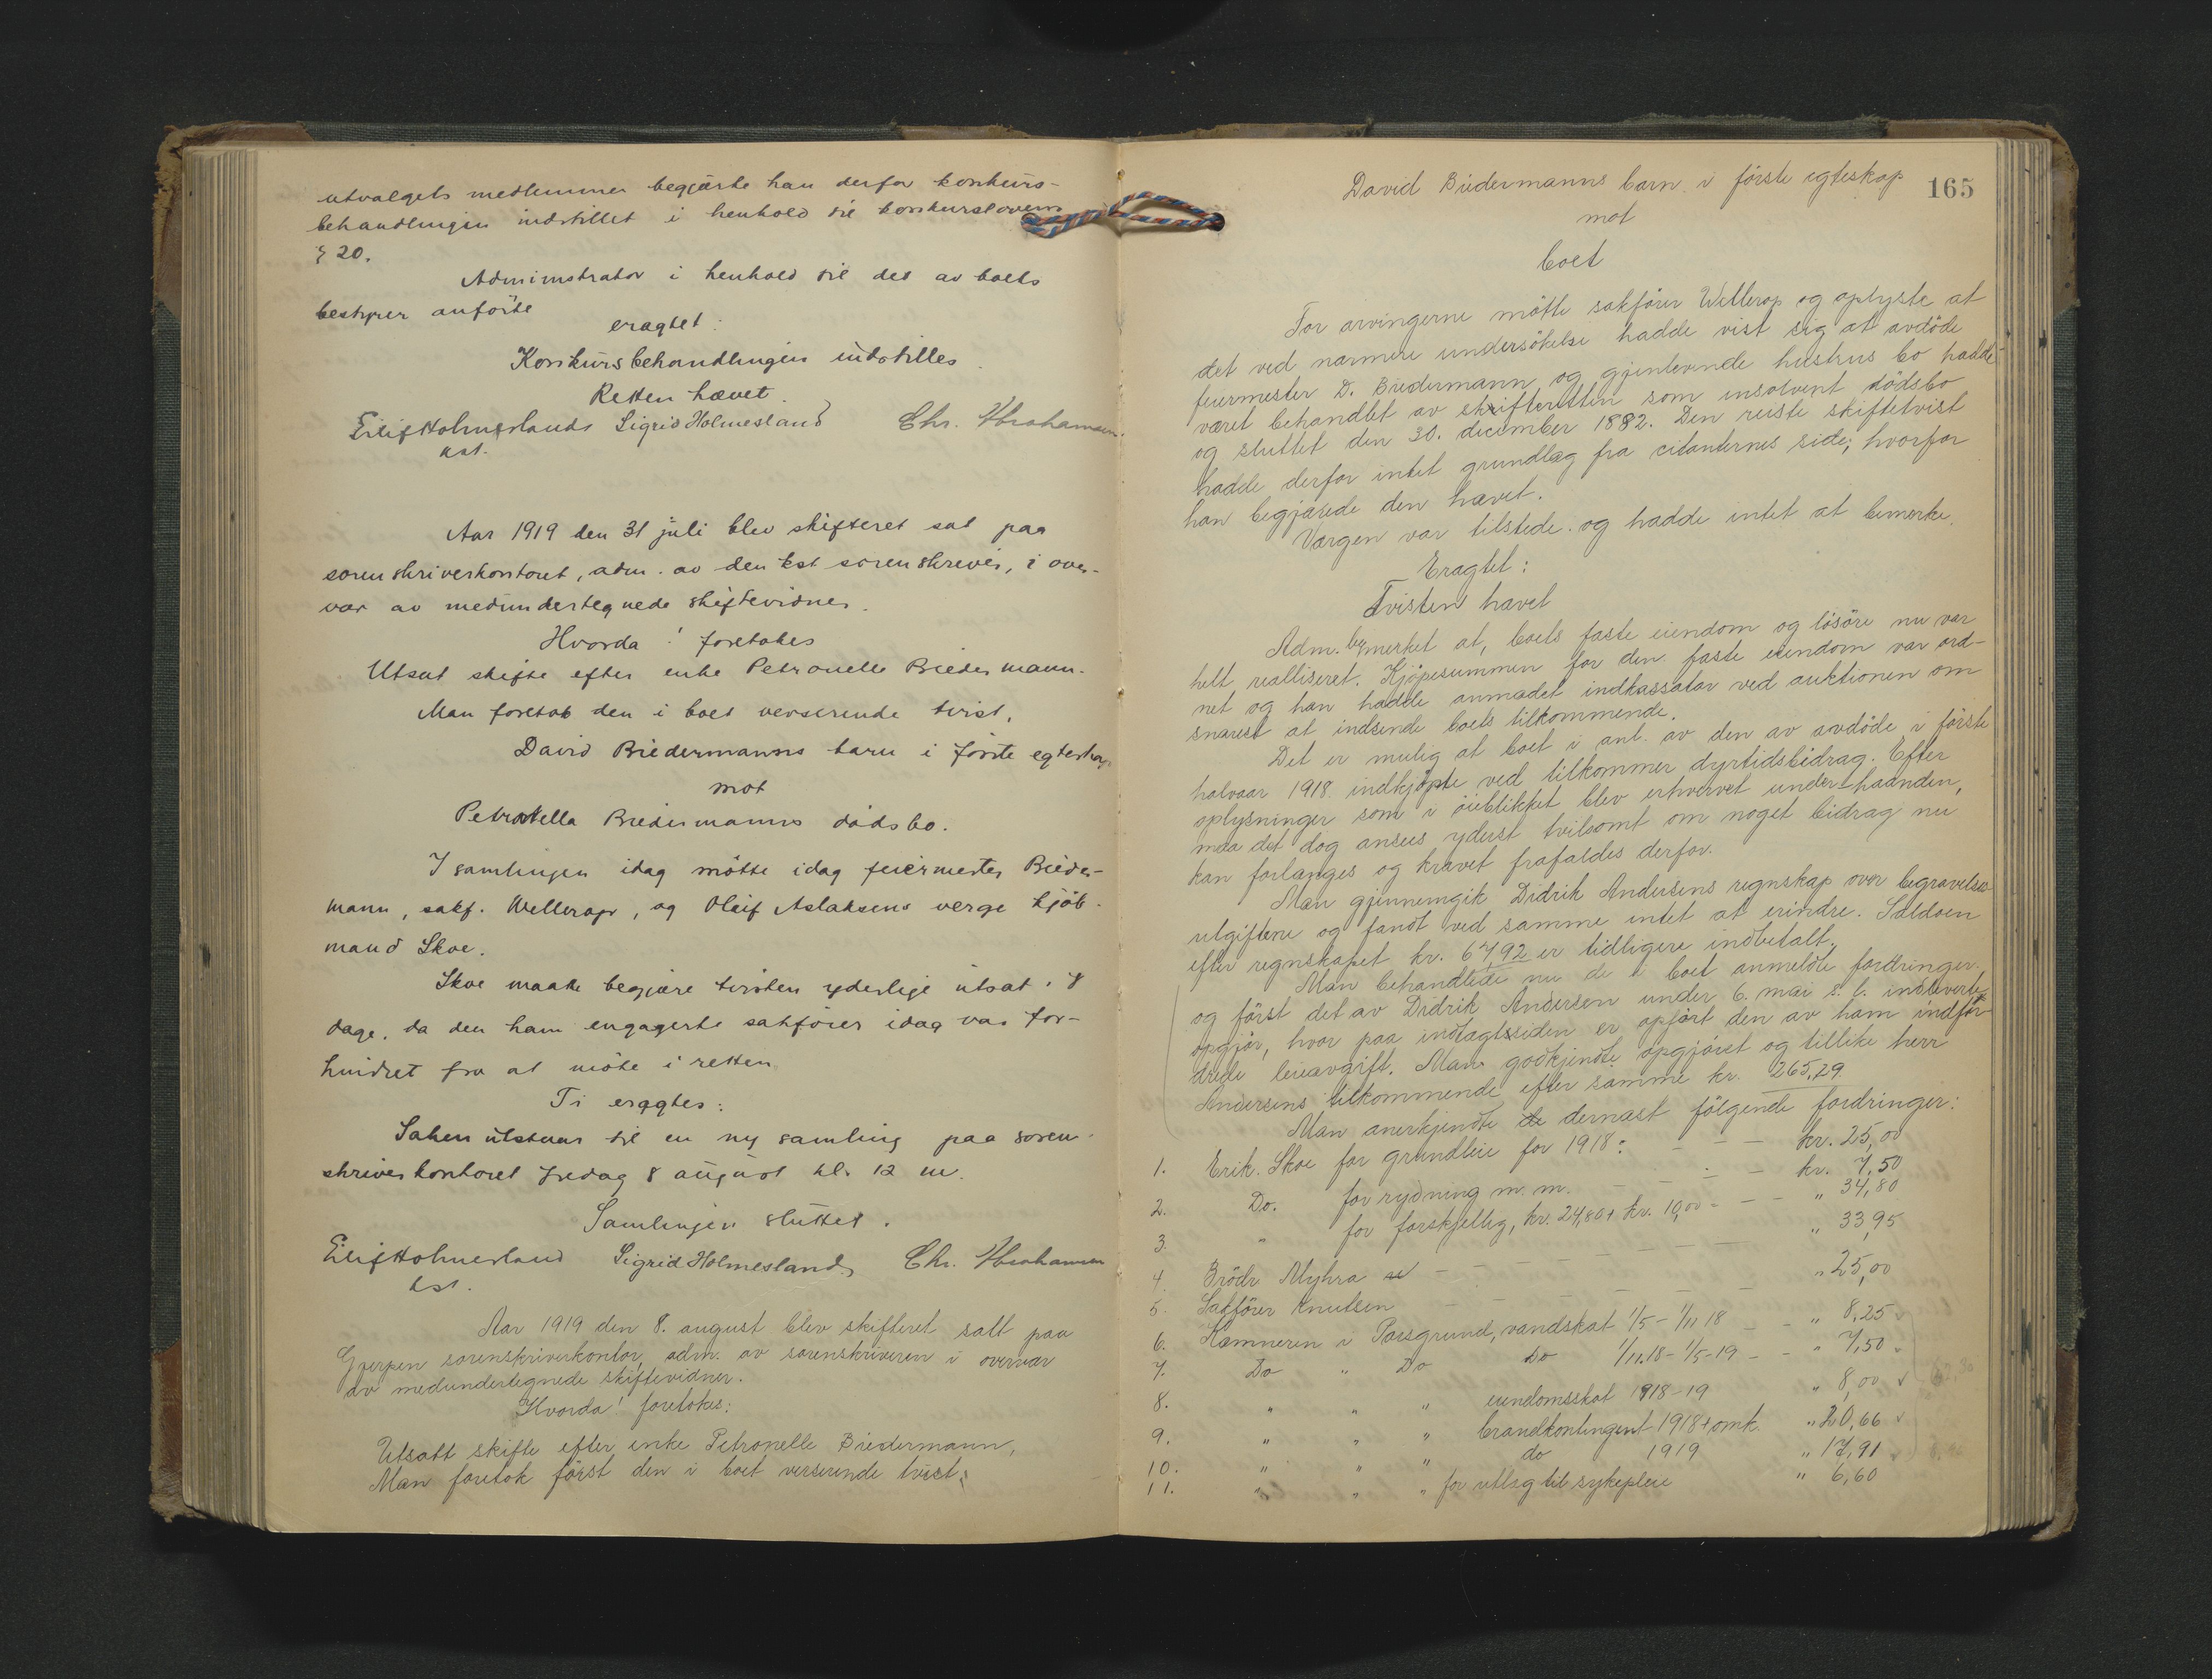 utvalgets medlemmer begjærte han derfor konkurs-
behandlingen indstillet i henhold til konkurslovens
§ 20.
Administrator i henhold til det av boets
bestyrer anførte
eragtet:
Konkursbehandlingen indstilles.
Retten hævet.
Eilif Holmesland Sigrid Holmesland Chr. Abrahamsen.
kst.
Aar 1919 den 31 juli blev skifteret sat paa
sorenskriverkontoret, adm. av den kst sorenskriver, i over-
vær av medundertegnede skiftevidner.
Hvorda! foretokes
Utsat skifte efter enke Petronelle Biedermann.
Man foretok den i boet verserende tvist,
David Biedermanns barn i første egteskap
mot
Petronella Biedermanns dødsbo.
I samlingen idag møtte idag feiermester Bieder-
mann, sakf. Wellerop, og Oleif Aslaksens verge kjøb-
mand Skoe.
Skoe maatte begjære tvisten yderlige utsat i 8
dage, da den ham engagerte sakfører idag var for-
hindret fra at møte i retten.
Ti eragtes:
Saken utstaar til en ny samling paa soren-
skriverkontoret fredag 8 august kl. 12 m.
Samlingen sluttet.
Eilif Holmesland Sigrid Holmesland Chr. Abrahamsen
kst.
Aar 1919 den 8. august blev skifteret satt paa
Gjerpen sorenskriverkontor, adm. av sorenskriveren i overvær
av medundertegnede skiftevidner.
Hvorda! foretokes:
Utsatt skifte efter enke Petronelle Biedermann,
Man foretok først den i boet verserende tvist:
165
David Biedermanns barn i første egteskap
mot
boet
For arvingerne møtte sakfører Wellerop og oplyste at
det ved nærmere undersøkelse hadde vist sig at avdøde
feiermester D. Biedermann og gjenlevende hustrus bo hadde
været behandlet av skifteretten som insolvent dødsbo
og sluttet den 30. december 1882. Den reiste skiftetvist
hadde derfor intet grundlag fra citanternes side, hvorfor
han begjærede den hævet.
Værgen var tilstede og hadde intet at bemerke.
Eragtet:
Tvisten hævet
Adm. bemerket at, boets faste eiendom og løsøre nu var
helt realliseret. Kjøpesummen for den faste eiendom var ord-
net og han hadde anmodet indkassator ved auktionen om
snarest at indsende boets tilkommende.
Det er mulig at boet i anl. av den av avdøde i første
halvaar 1918 indkjøpte ved tilkommer dyrtidsbidrag. Efter
oplysninger som i øieblikket blev erhvervet under haanden,
maa det dog ansees yderst tvilsomt om noget bidrag nu
kan forlanges og kravet frafaldes derfor.
Man gjennemgik Didrik Andersens regnskap over begravelses-
utgiftene og fandt ved samme intet at erindre. Saldoen
efter regnskapet kr. 67,92 er tidligere indbetalt.
Man behandlede nu de i boet anmeldte fordringer,
og først det av Didrik Andersen under 6. mai s. l. indleverte
opgjør, hvor paa indtægtssiden er opført den av ham indfor-
drede leieavgift. Man godkjendte opgjøret og tillike herr
Andersens tilkommende efter samme kr. 265,29
Man anerkjendte de dernæst følgende fordringer:
1. Erik. Skoe for grundleie for 1918: - - - kr. 25,00
2. Do. for rydning m. m. - - - - kr. 7,50
3. " for forskjellig, kr. 24,80 + kr. 10,00 - - - " 34,80
4. Brødr Myhra - - - - - - " 33,95
5. Sakfører Knutsen - - - - - - " 25,00
6. Kæmneren i Porsgrund, vandskat 1/5 - 1/11 18 - - " 8,25
7. Do " Do Do 1/11.18 - 1/5-19 - - " 7,50
8. " " " eiendomsskat 1918-19 " 8,00
9. " " " brandkontingent 1918 + omk. " 20,66
10. " " " do 1919 " 17,91
11. " " " for utlæg til sykepleie " 6,60